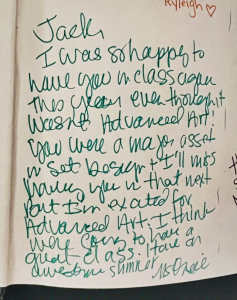 Ryleigh ♡
Jack,
I was so happy to
have you in class again
this year even though it
wasn't Advanced Art!
You were a major asset
in Set Design & I'll miss
having you in that next
but I'm exated for
Advanced Art, I think
were going to have a
great class. Have an
awesome summer